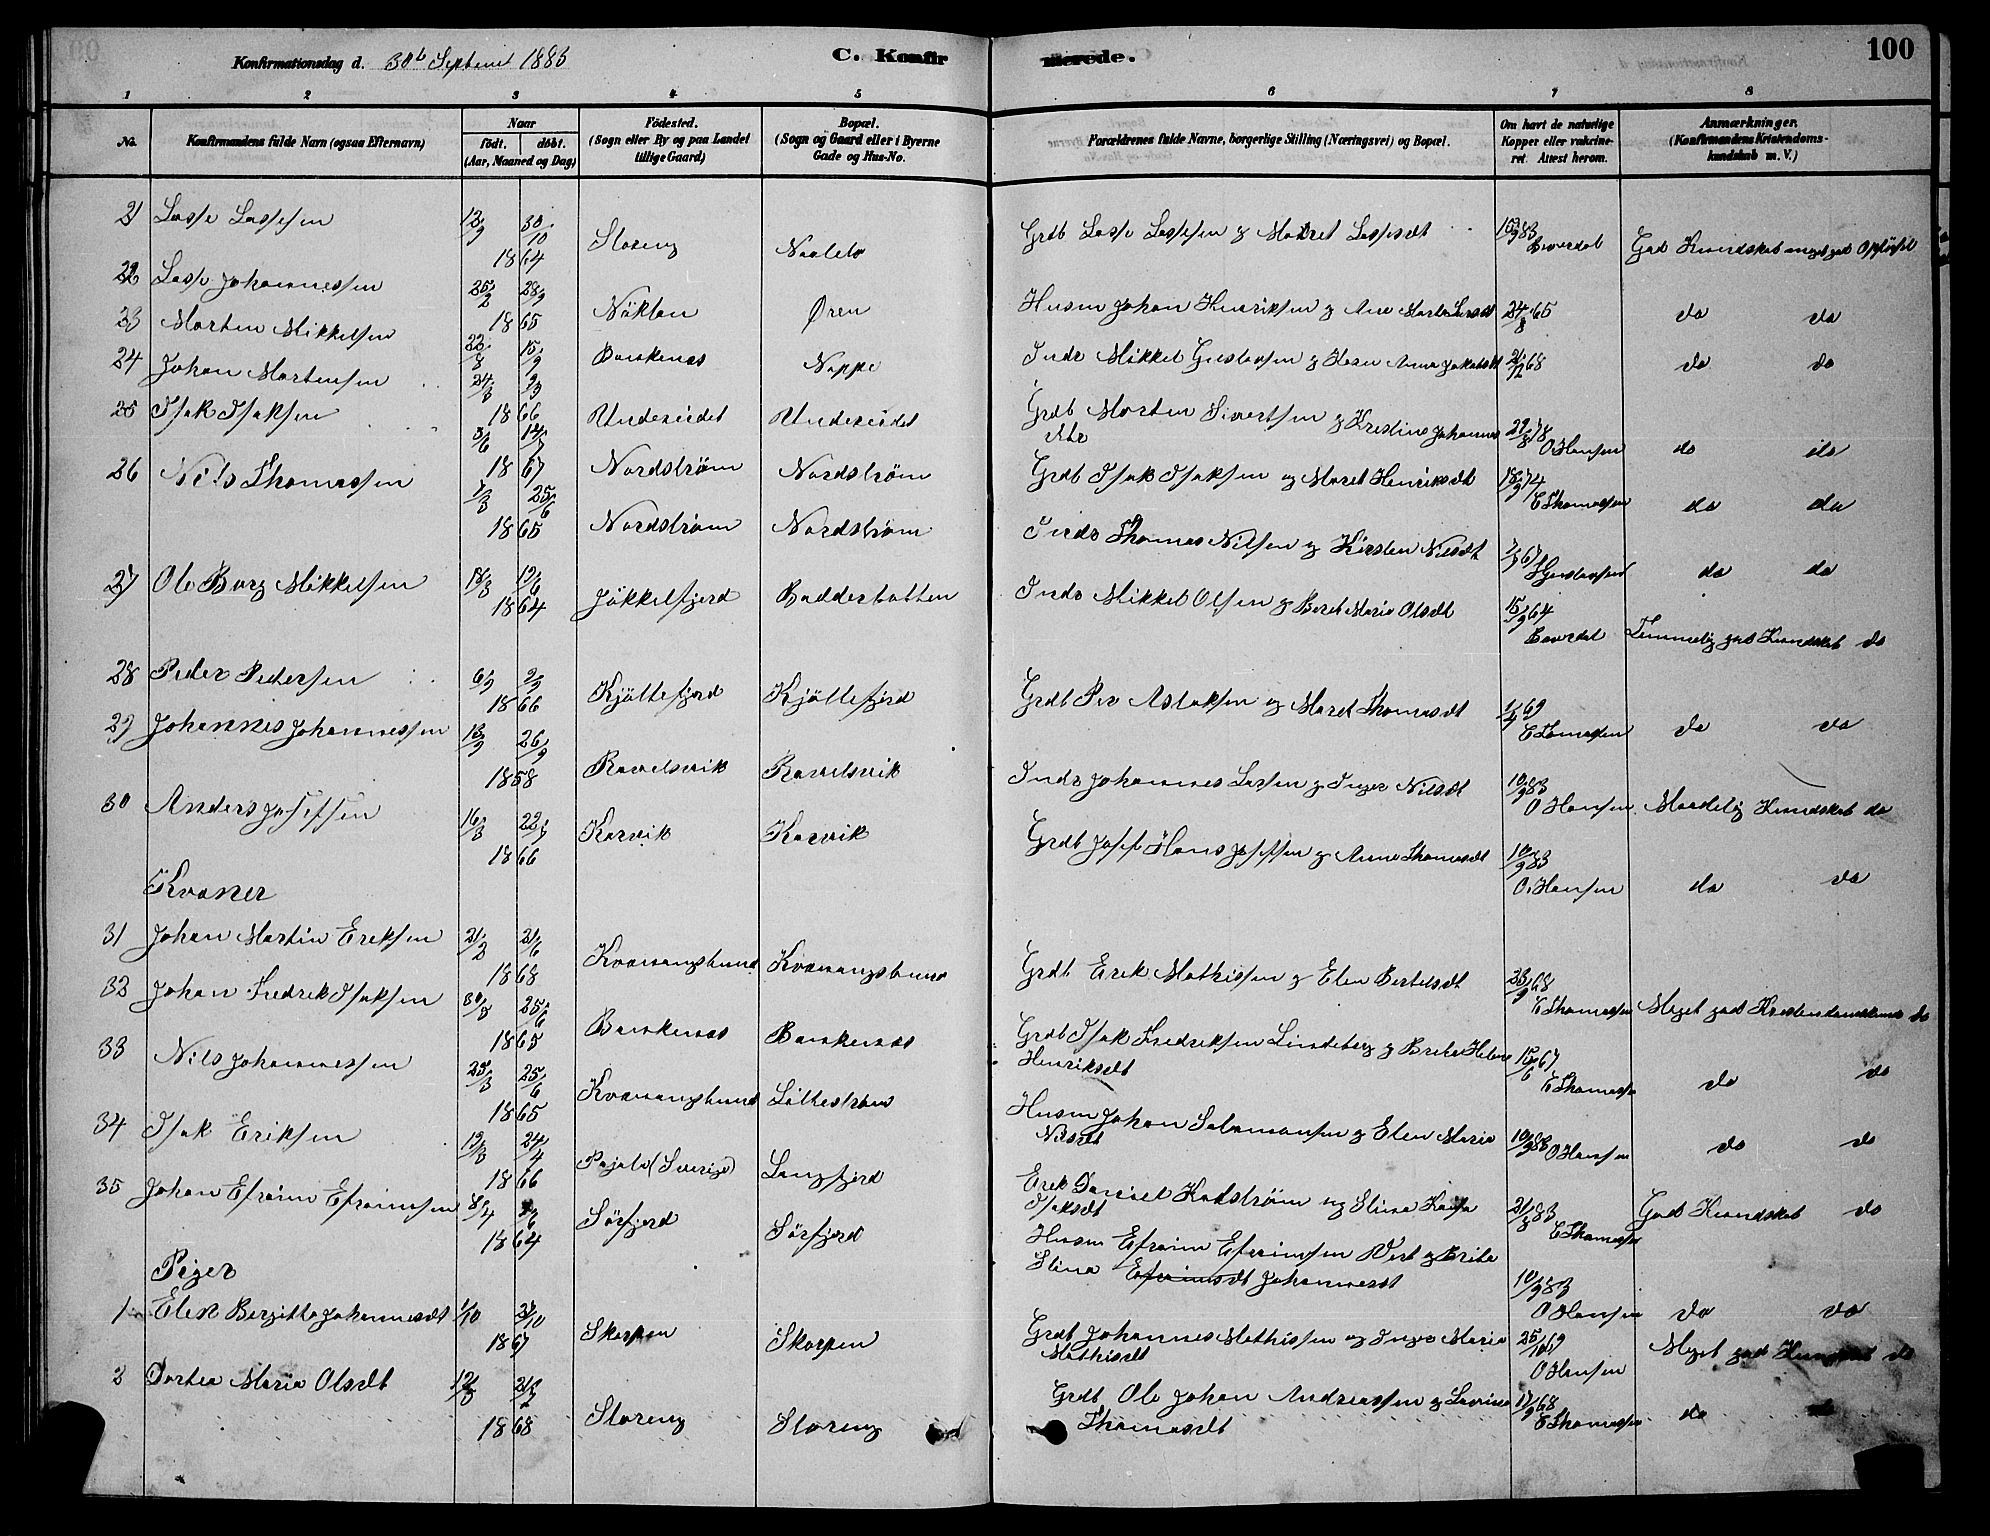 Konfirmationsdag d. 30te Septemr 1883 C. Konfirmerede. 100
1 2 3 4 5 6 7 8
No. Konfirmandens fulde Navn (ogsaa Efternavn) Naar født. døbt. (Aar, Maaned og Dag) Fødested. (Sogn eller By og paa Landet tillige Gaard) Bopæl. (Sogn og Gaard eller i Byerne Gade og Hus-No. Forældrenes fulde Navne, borgerlige Stilling (Næringsvei) og Bopæl. Om havt de naturlige Kopper eller vakcineret. Attest herom. Anmærkninger. (Konfirmandens Kristendomskundskab m. V.)
21 Lasse Lassesen 12/9 30/10 1864 Storeng Grdb Lasse Lassesen og Maret Lassesdt 10/9 83 God Kundskab meget god Opførsel
22 Lasse Johannessen 25/2 28/9 1865 Nøklan Øren Husm Johan Henriksen og Ane Marta 24/8 65 do do
23 Morten Mikkelsen 22/8 15/9 Barskenæs Noppe Indr Mikkel Gustavsen og Anna Jakobsdt 21/12 68 do do
24 Johan Mortensen 24/3 1866 Undereidet Undereidet Grdb Morten Sivertsen og Kristine Johannesdtr 29/8 78 O Hansen do do
25 Isak Isaksen 3/6 14/7 1867 Nordstrøm Nordstrøm Grdb Isak Isaksen og Maret Henriksdt 18/9 74 E Thomassen do do
26 Nils Thomassen 7/3 25/6 1865 Nordstrøm Nordstrøm Indr Thomas Nilsen og Kirsten Nilsdt 67 do do
27 Ole Borg Mikkelsen 18/3 12/6 1864 Jøkkelfjord Badderbotten Indr Mikkel Olsen og Beret Maria Olsdt 15/9 64 Temmelig god Kundskab do
28 Peder Pedersen 1866 Kjøllefjord Kjøllefjord Grdb Per Aslaksen og Maret Thomasdt 69 E Tomassen do do
29 Johannes Johannessen 13/9 26/9 1858 Ravelsvik Ravelsvik Indr Johannes Larsen og Inger Nilsdt 10/9 83 O Hansen Maadelig Kundskab do
30 Anders Josefsen 16/3 22/7 1866 Korvik Korvik Grdb Josef Hans Josefsen og Anne Thomasdt 10/9 83 O. Hansen do do
Kvæner
31 Johan Martin Eriksen 21/2 21/6 1868 Kvænangsbund Kvænangsbund Grdb Erik Mathissen og Elen Bertelsdt 23/9 68 E Thomassen Meget god Kristendomskund do
32 Johan Fredrik Isaksen 25/6 1865 Barskenæs Barskenæs Grdb Isak Fredriksen Lindeberg og Breta Helena Henriksdt 15/6 67 E Thomassen do do
33 Nils Johannessen 29/3 25/6 1865 Kvænangsbund Lillestrøm Husm Johan Salamonsen og Elen Maria Nilsdt 10/9 83 O Hansen do do
34 Isak Eriksen 19/3 24/4 1866 Pajala (Sverige) Langfjord Erik Daniel og Elina Isaksdt 21/8 83 E Thomassen God Kundskab do
35 Johan Efraim Efraimsen 8/4 1864 Sørfjord Sørfjord Husm Efraim Efraimsen og Brita Elina Efraimsdt Johannesdt 10/9 83 O Hansen do do
Piger
1 Elen Bergitte Johannesdt 1/10 1867 Skorpen Skorpen Grdb Johannes Mathissen og Inger Maria Mathisdt 25/10 69 O Hansen Meget god Kundskab do
2 Dortea Maria Olsdt 1868 Storeng Storeng Grdb Ole Johan Andreassen og Lavina Thomasdt 17/9 68 E Thomassen do do